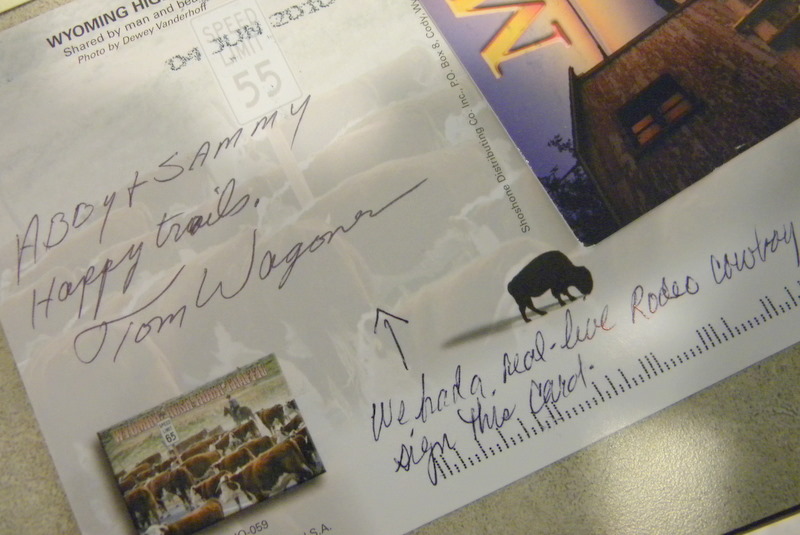 WYOMING HIG
Shared by man and be
Photo by Dewey Vanderhoff
04 JUN 2010
SPEED
LIMIT
55
ABBy & SAMMY
Happy trails.
Tom Wagoner
We had a real-live Rodeo Cowboy
sign this card.
Shoshone Distributing Co. Inc., P.O. Box 8, Cody, W
W
SPEED
LIMIT
65
O-059
S.A.